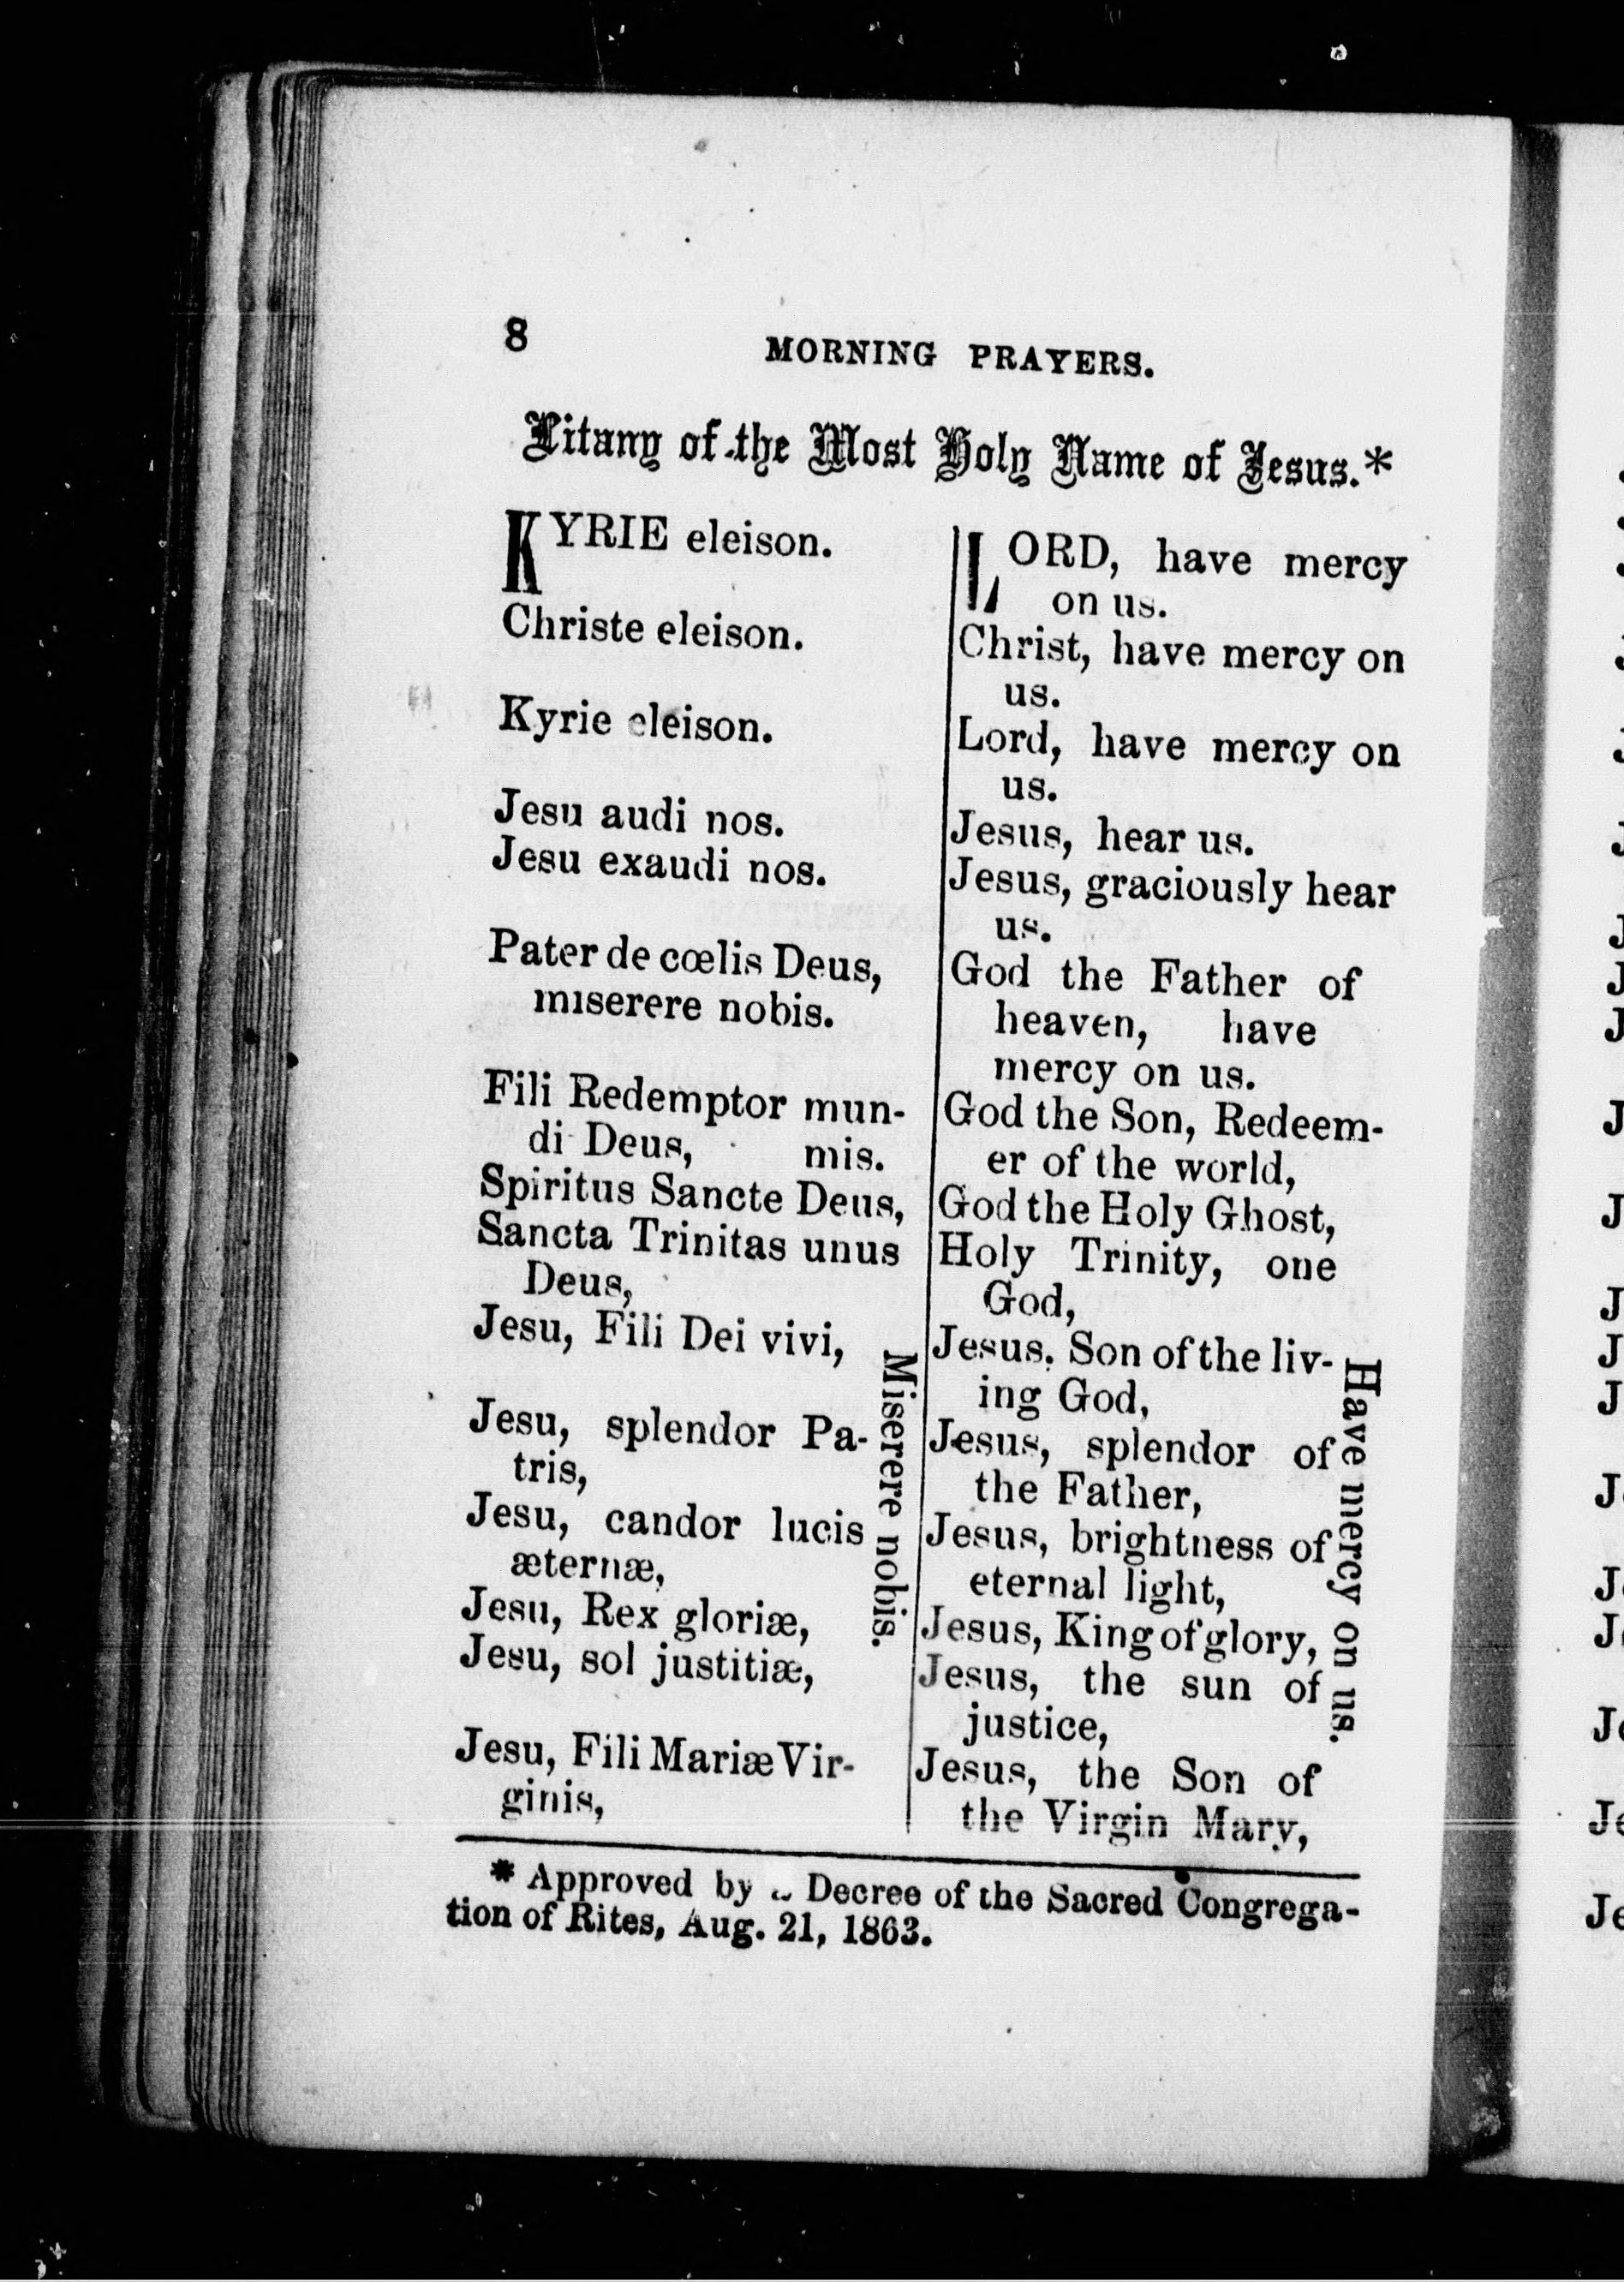 8
MORNING PRAYERS.
Litany of the Most Holy Name of Jesus.*
KYRIE eleison.
Christe eleison.
Kyrie eleison.
Jesu audi nos.
Jesu exaudi nos.
Pater de cœlis Deus,
miserere nobis.
Fili Redemptor mun-
di Deus, mis.
Spiritus Sancte Deus,
Sancta Trinitas unus
Deus,
Jesu, Fili Dei vivi,
Jesu, splendor Pa-
tris,
Jesu, candor lucis
æternæ,
Jesu, Rex gloriæ,
Jesu, sol justitiæ,
Jesu, Fili Mariæ Vir-
ginis,
Miserere nobis.
LORD, have mercy
on us.
Christ, have mercy on
us.
Lord, have mercy on
us.
Jesus, hear us.
Jesus, graciously hear
us.
God the Father of
heaven, have
mercy on us.
God the Son, Redeem-
er of the world,
God the Holy Ghost,
Holy Trinity, one
God,
Jesus, Son of the liv-
ing God,
Jesus, splendor of
the Father,
Jesus, brightness of
eternal light,
Jesus, King of glory,
Jesus, the sun of
justice,
Jesus, the Son of
the Virgin Mary,
Have mercy on us.
* Approved by a Decree of the Sacred Congrega-
tion of Rites, Aug. 21, 1863.